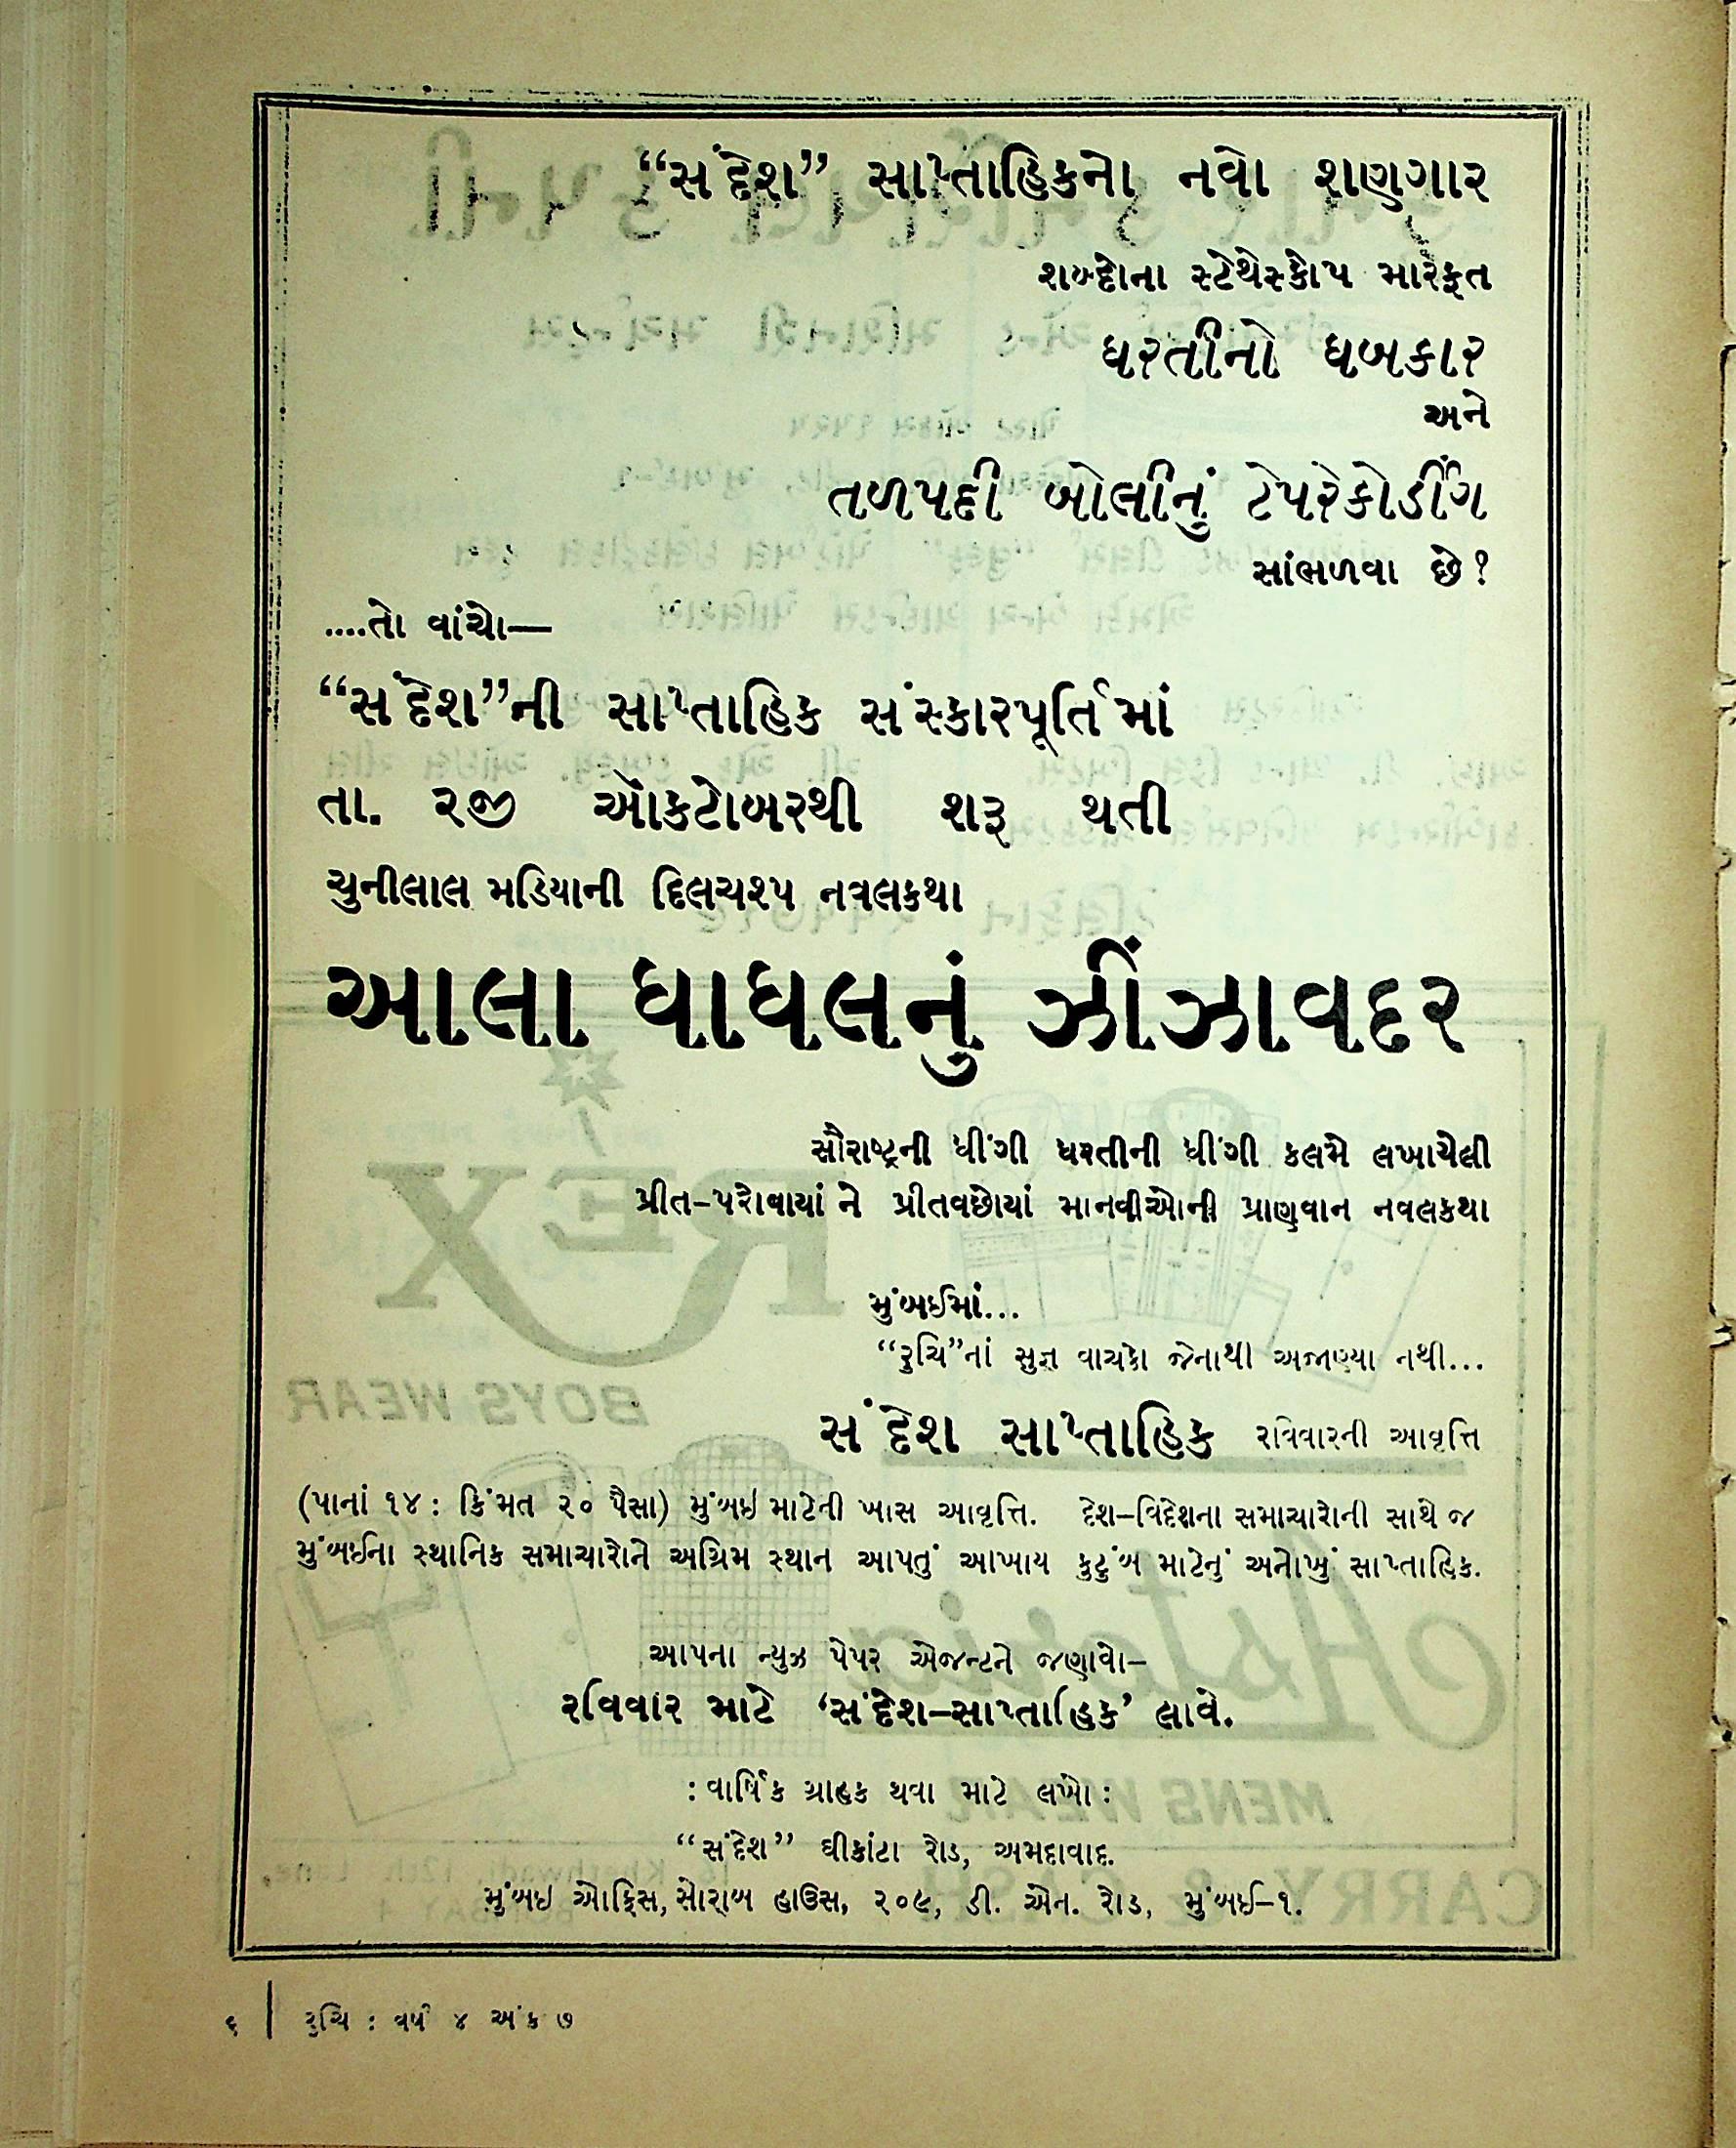 “સંદેશ” સાપ્તાહિકનો નવો શણગાર
શબ્દોના સ્ટેથેસ્કોપ મારફત
ધરતીનો ધબકાર
અને
તળપદી બોલીનું ટેપરેકોર્ડીંગ
સાંભળવા છે?
....તો વાંચો—
“સંદેશ”ની સાપ્તાહિક સંસ્કારપૂર્તિમાં
તા. ૨જી ઑકટોબરથી શરૂ થતી
ચુનીલાલ મડિયાની દિલચશ્પ નવલકથા
આલા ધાધલનું ઝીંઝાવદર
સૌરાષ્ટ્રની ધીંગી ધરતીની ધીંગી કલમે લખાયેલી
પ્રીત-પરોવાયાં ને પ્રીતવછોયાં માનવીઓની પ્રાણવાન નવલકથા
મુંબઈમાં...
“રુચિ”નાં સુજ્ઞ વાચકો જેનાથી અજાણ્યા નથી...
સંદેશ સાપ્તાહિક રવિવારની આવૃત્તિ
(પાનાં ૧૪ : કિંમત ૨૦ પૈસા) મુંબઇ માટેની ખાસ આવૃત્તિ. દેશ-વિદેશના સમાચારોની સાથે જ
મુંબઈના સ્થાનિક સમાચારોને અગ્રિમ સ્થાન આપતું આખાય કુટુંબ માટેનું અનોખું સાપ્તાહિક.
આપના ન્યુઝ પેપર એજન્ટને જણાવો-
રવિવાર માટે ‘સંદેશ-સાપ્તાહિક’ લાવે.
: વાર્ષિક ગ્રાહક થવા માટે લખો :
“સંદેશ” ઘીકાંટા રોડ, અમદાવાદ.
મુંબઇ ઓફિસ, સોરાબ હાઉસ, ૨૦૯, ડી. એન. રોડ, મુંબઈ-૧.
૬ | રુચિ : વર્ષ ૪ અંક ૭